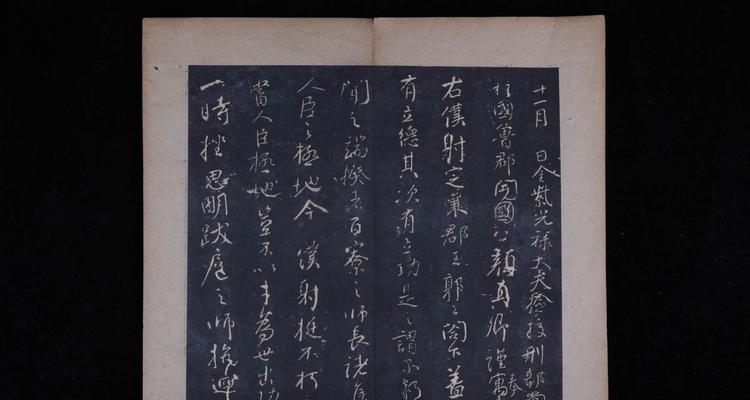 十一月 日金紫光祿大夫檢挍刑部尚
柱國魯郡開國公顏真卿謹奉寓
右僕射定襄郡王郭公閤下蓋
有立德其次有立功是之謂不朽
聞之端揆者百寮之師長諸矦
人臣之極地今僕射挺不朽
當人臣極地豈不以才為世出功
一時挫思明跋扈之師抗迴